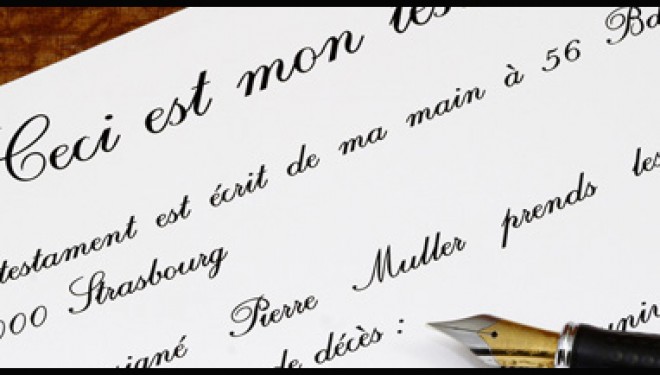 Ceci est mon
testament est écrit de ma main à 56 Bd
000 Strasbourg
Pierre Muller prends les
de décès :